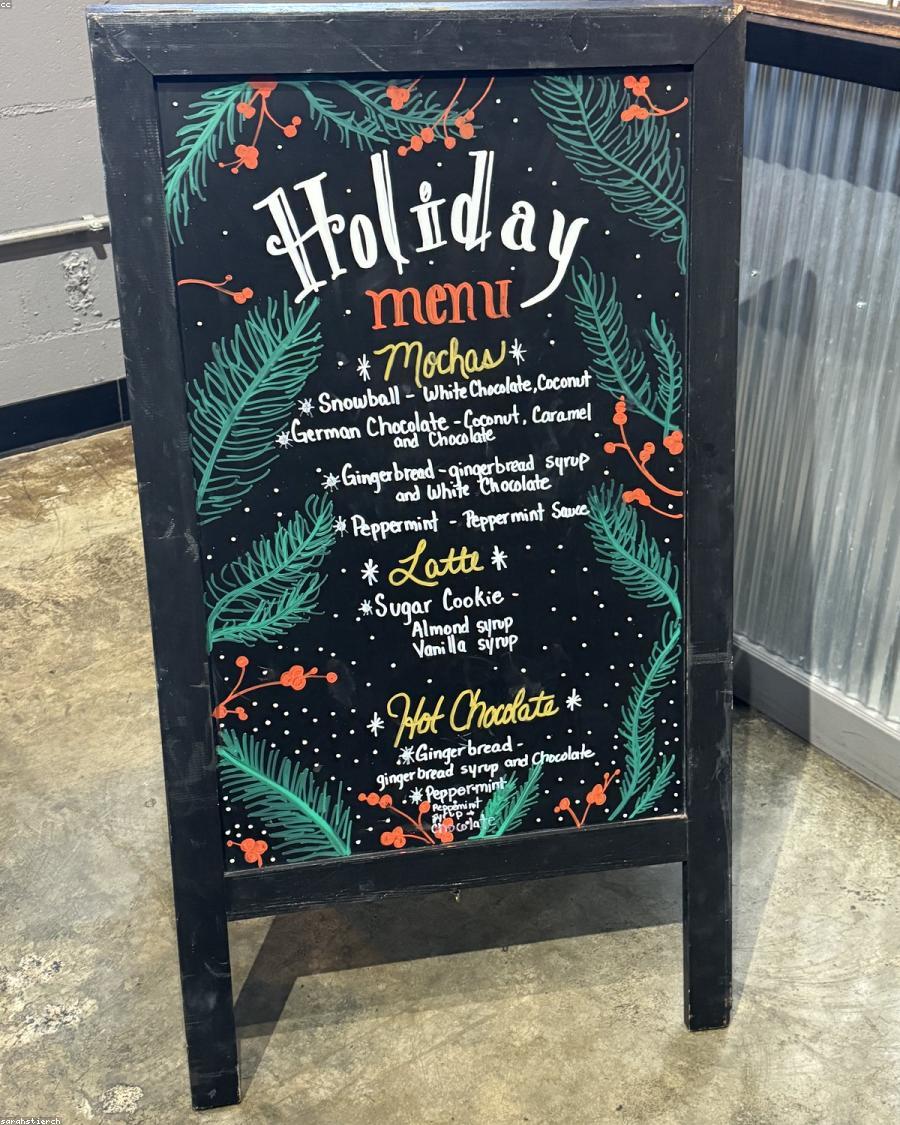 cc
Holiday
menu
Mochas
Snowball - White Chocolate, Coconut
German Chocolate - Coconut, Caramel
and Chocolate
Gingerbread - gingerbread syrup
and White Chocolate
Peppermint - Peppermint Sauce
Latte
Sugar Cookie -
Almond syrup
Vanilla syrup
Hot Chocolate
Gingerbread -
gingerbread syrup and Chocolate
Peppermint
Peppermint
syrup +
Chocolate
sarahstierch